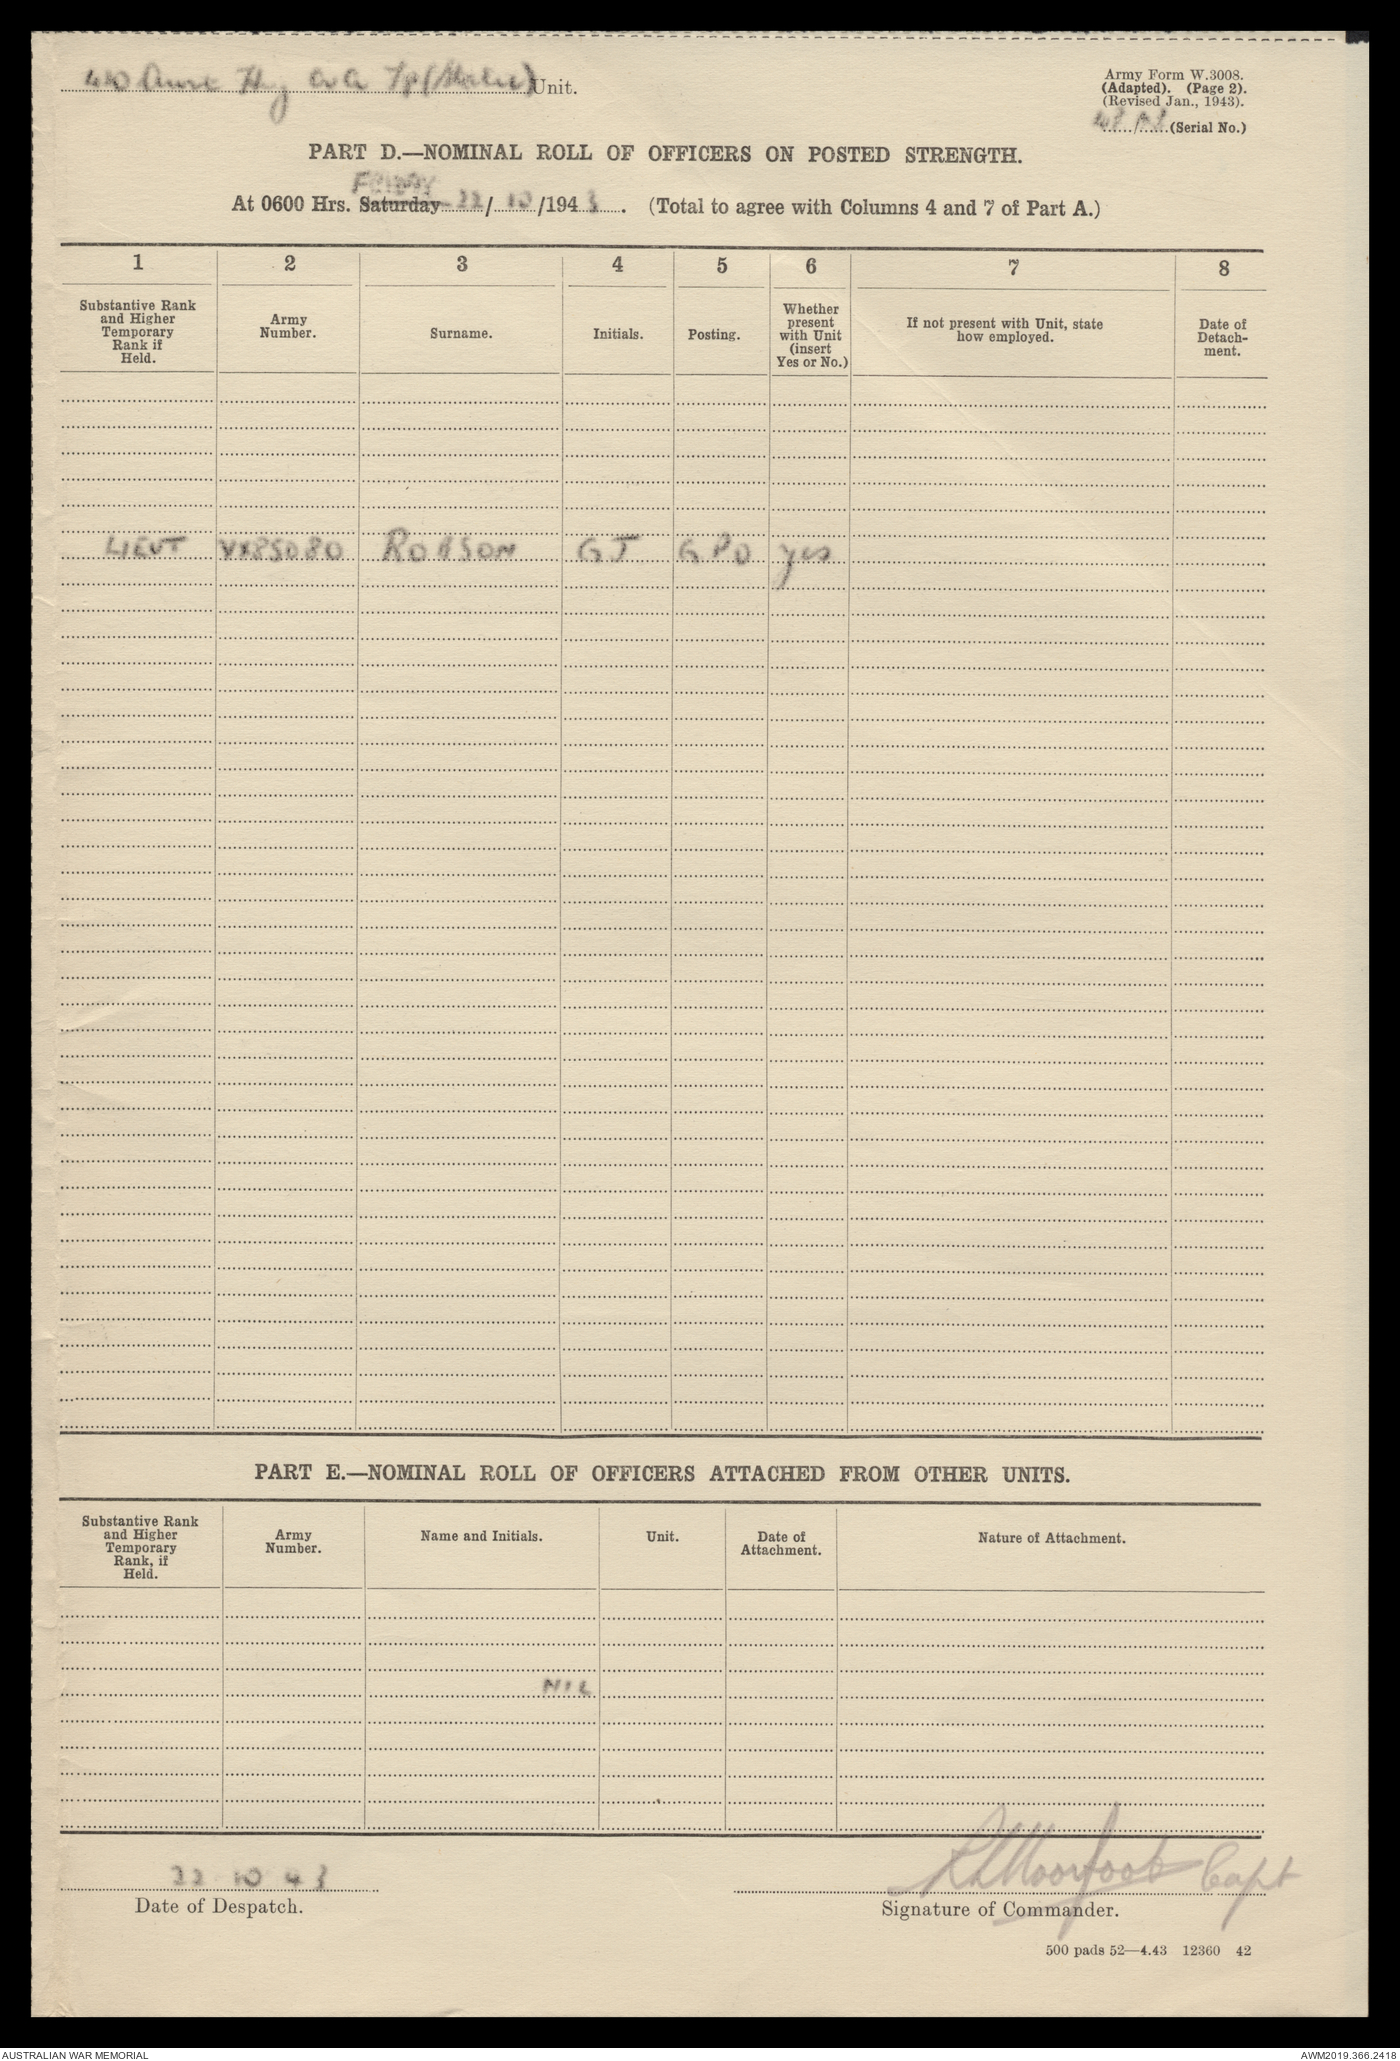 Aust Hy AA Tp (Static) Unit.
Army Form W.3008.
(Adapted). (Page 2).
(Revised Jan., 1943).
(Serial No.)
PART D.—NOMINAL ROLL OF OFFICERS ON POSTED STRENGTH.
FRIDAY
At 0600 Hrs. Saturday 22/10/1943. (Total to agree with Columns 4 and 7 of Part A.)
1 2 3 4 5 6 7 8
Substantive Rank and Higher Temporary Rank if Held. Army Number. Surname. Initials. Posting. Whether present with Unit (insert Yes or No.) If not present with Unit, state how employed. Date of Detach-ment.
LIEUT VX85080 ROBSON GJ GPO yes
PART E.—NOMINAL ROLL OF OFFICERS ATTACHED FROM OTHER UNITS.
Substantive Rank and Higher Temporary Rank, if Held. Army Number. Name and Initials. Unit. Date of Attachment. Nature of Attachment.
NIL
22 10 43
Moorfoot Capt
Date of Despatch. Signature of Commander.
500 pads 52—4.43 12360 42
AUSTRALIAN WAR MEMORIAL AWM2019.366.2418